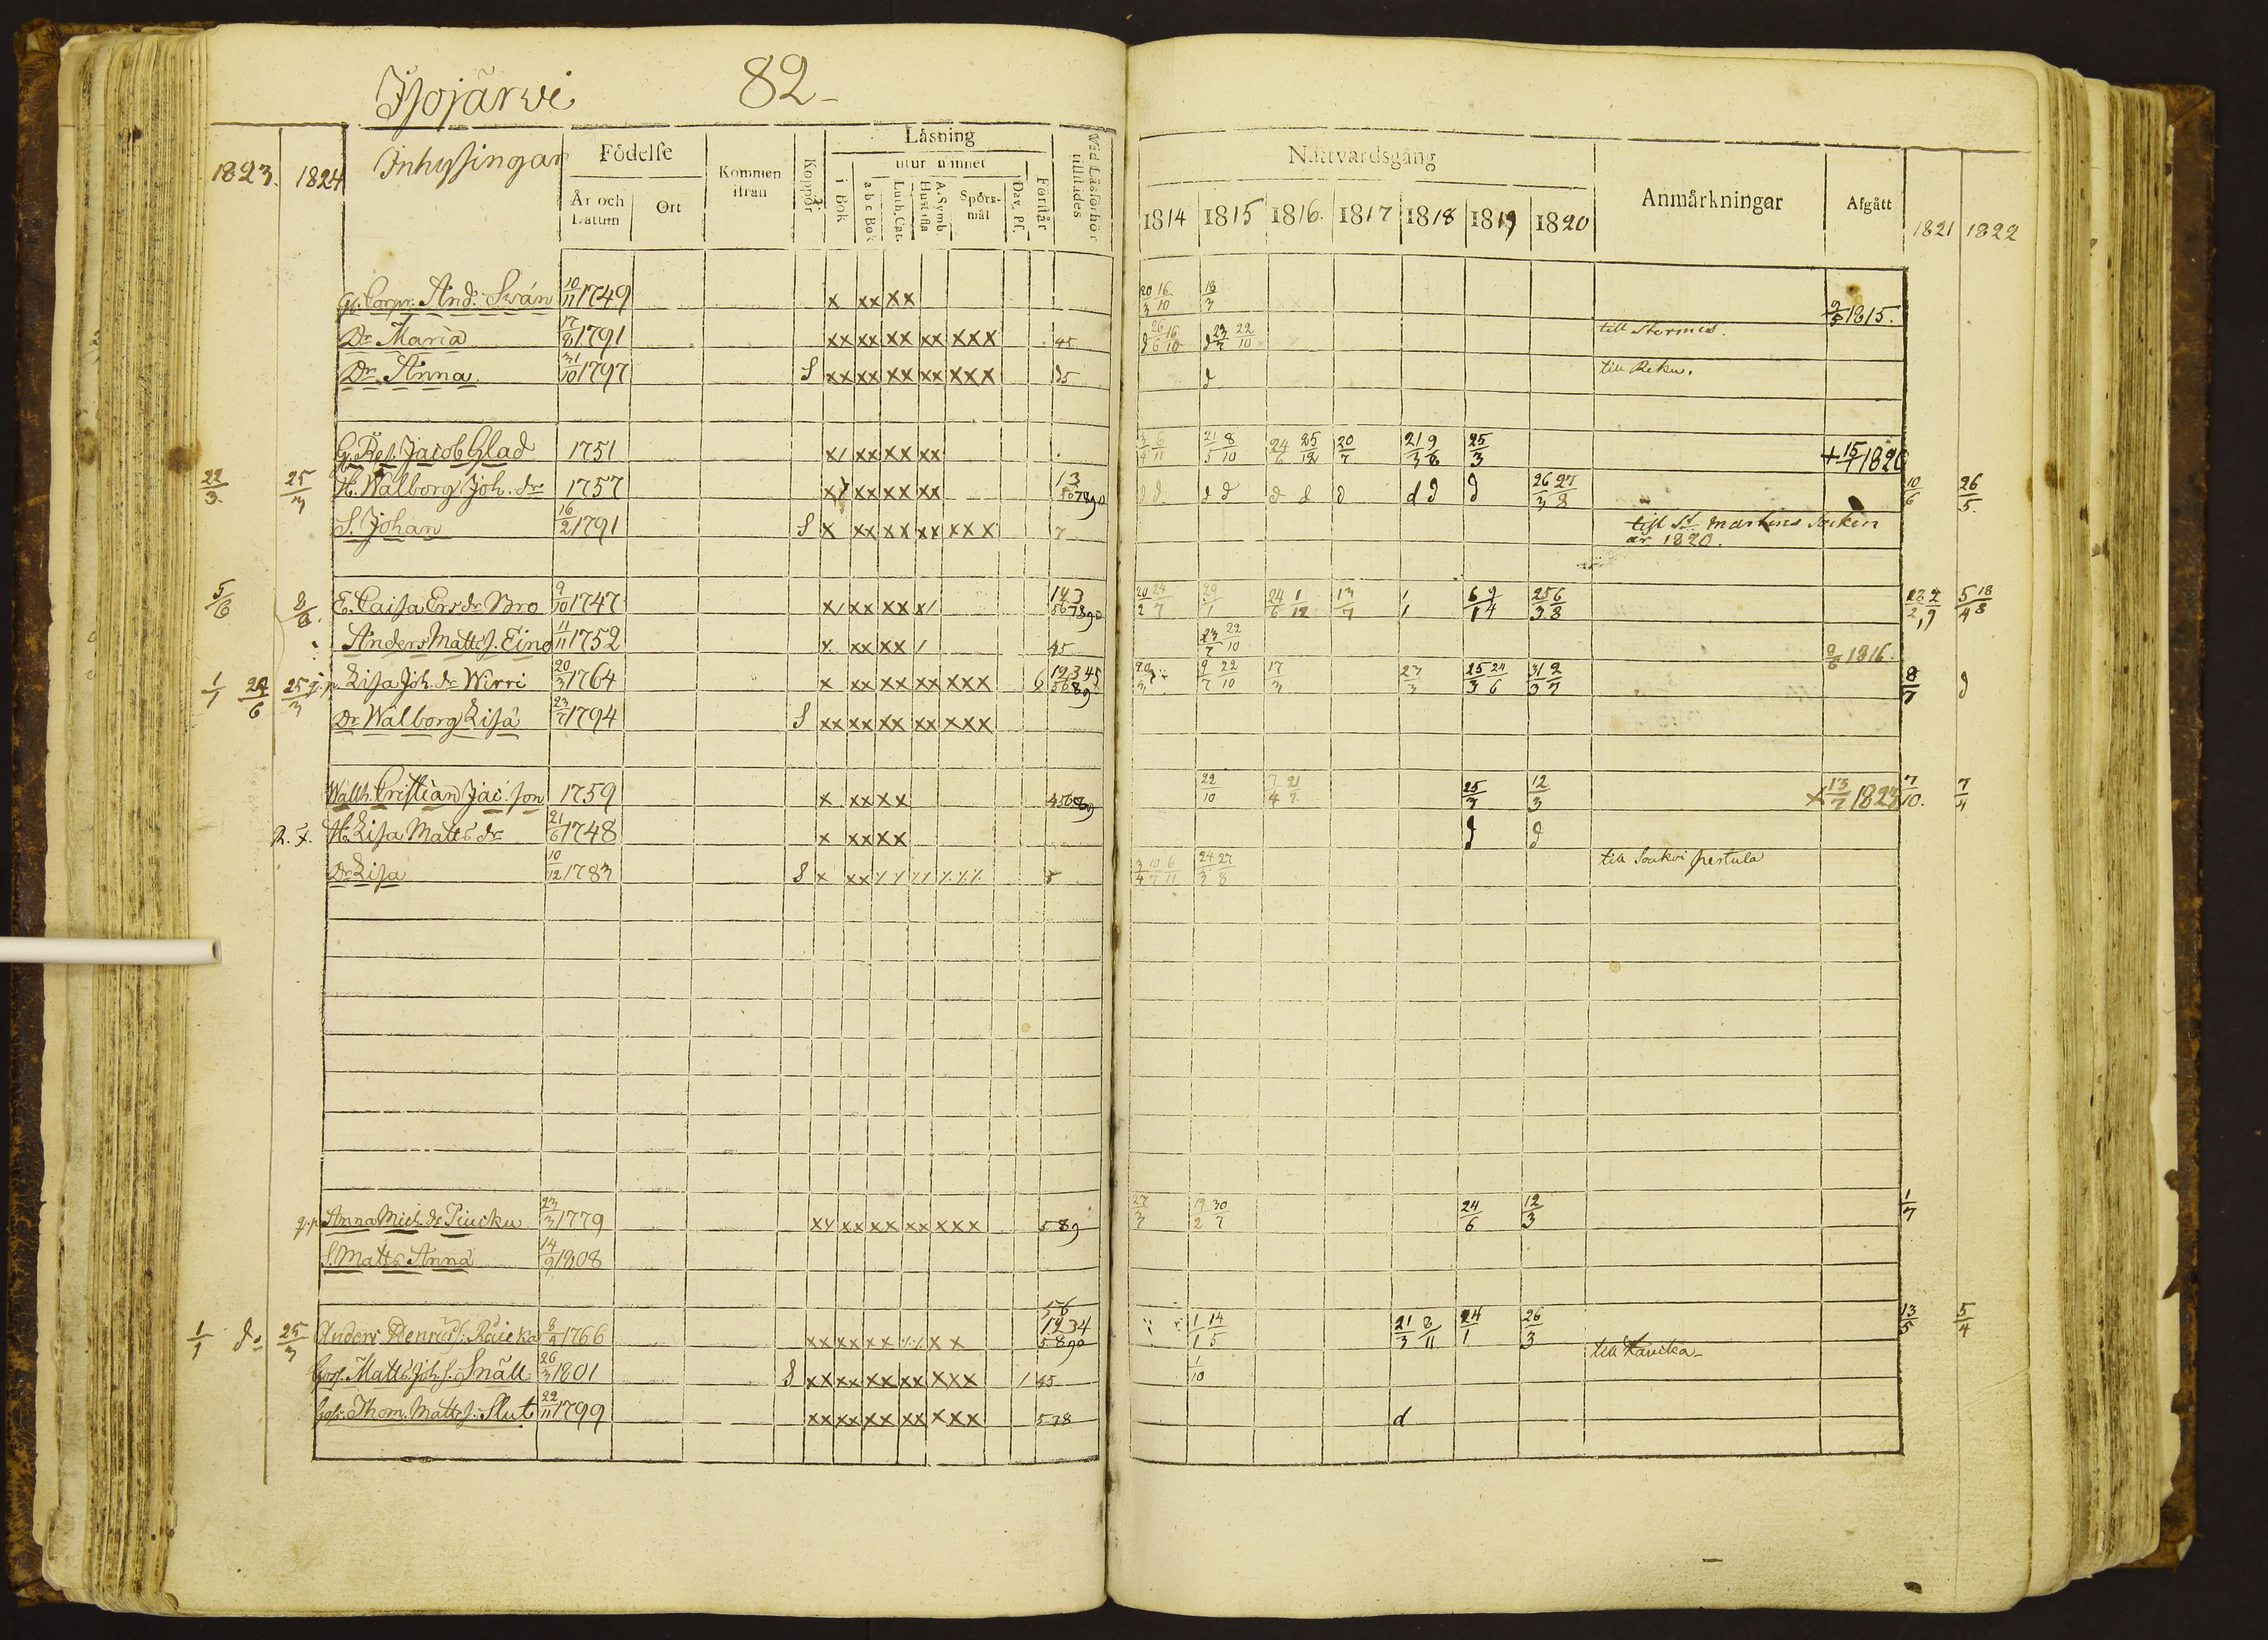 Isojärwi 82
1823. 1824 Inhysingar Födelse År och Datum Ort Kommen ifrån Koppor Läsning utur minnet i Bok a b c Bok Luth. Cat. A. Symb. Hustafla Spörsmål Dav. Ps. Förstår Wid Läsförhör tillstädes
Nattvardsgång 1814 1815 1816. 1817 1818 1819 1820 Anmärkningar Afgått 1821 1822
Gl. Corpr. And: Swán 10/11 1749 x xx xx 20/3 16/10 18/3 1815.
Dr Maria 17/8 1791 xx xx xx xx xxx 45 d 26/6 16/10 d 23/7 22/10 till Stormis.
Dr. Anna 31/10 1797 S xx xx xx xx xxx d till Reku.
G. Res. Jacob Glad 1751 x/ xx xx xx 3/4 6/11 21/5 8/10 24/6 25/12 20/7 21/3 9/8 25/3 + 15/7 1820
22/3 25/3 H. Walborg Joh. dr 1757 xx xx xx d d d d d d d d d d 26/3 27/8 10/6 26/5.
S. Johan 16/2 1791 S x xx xx xx xxx 7 till St Martins Socken
år 1820.
5/6 8/6. E. Caisa Ers dr Bro 9/10 1747 x/ xx xx x/ 123 567890 20/2 24/7 29/1 24/6 1/12 13/7 1/1 6/1 9/4 25/3 6/8 5/4 18/8
Anders Matts S. Eino 11/11 1752 x xx xx / 45 23/7 22/10 1816.
1/1 24/6 25/3 Lisa Joh. dr Wirri 20/3 1764 x xx xx xx xxx 6 12345 5689 9/7 22/10 17/3 23/3 25/3 24/6 31/3 2/7 8/7 d
Dr Walborg Lisa 23/7 1794 S xx xx xx xx xxx
Wallh. Cristian Jac. son 1759 x xx xx 45689 22/10 7/4 21/7 25/3 12/3 x 13/7 1823 7/10. 7/4
H. Lisa Matts dr 21/6 1748 x xx xx d d
Dr Lisa 10/12 1783 S x xx 5 3/4 10/7 6/11 24/3 27/8 till Soukvi pertula
Anna Mich. dr Piucku 23/3 1779 xx xx xx xx xxx 589 27/3 19/2 30/7 24/6 12/3 1/7
S. Matts Anna 14/9 1808
1/1 do 25/3 Anders Henrics S. Raicka 8/9 1766 xx xx xx x x 56 1234 5890 1/1 14/5 21/3 8/11 24/1 26/3 13/5 5/4
Goss. Matts Joh. S. Snäll 26/3 1801 S xx xx xx xx xxx / 45 1/10 till Kaucka
Goss. Thom. Matts S. Slut 22/11 1799 xx xx xx xx xxx 578 d